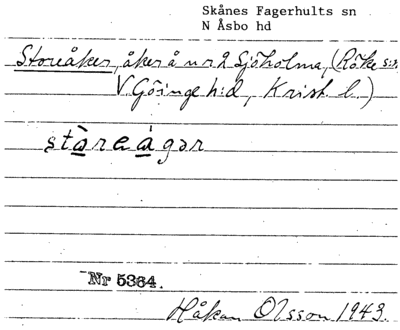 Skånes Fagerhults sn
N Åsbo hd
Storeåker, åker å nr 2 Sjöholma, (Röke s:n,
V. Göinge h:d, Krist. l.)
stàreágər
Nr 5364.
Håkan Olsson 1943.